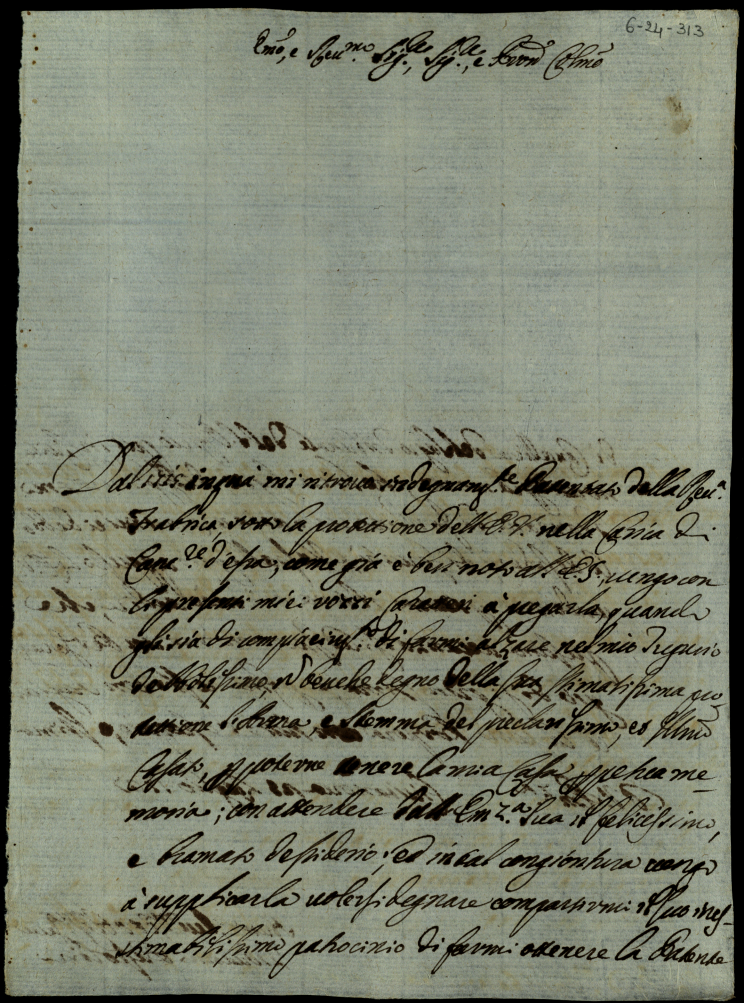 6-24-313
Emo, e Reu.mo Sig.re, Sig.re, e Pron Colmo
Dal in qui mi ritrovo indegnam.te Patentato della Reu.a
Frabrica, sotto la protettione dell'E.V. nella Carica di
Canc.re d'essa, come già è ben noto all'E.S., vengo con
le presenti miei à pregarla, quando
gli sia di compiacim.to di farmi alzare nel mio
debolissimo, segno della sua stimatissima pro_
tettione l'Arma e Stemma del preclarissimo, et Illmo
Casato, p poterne tenere la mia Casa ppetua me_
moria; con attendere dall'Em.za Sua il felicissimo,
e bramato desiderio; ed in tal congiontura vengo
à supplicarla volersi degnare compartirmi il suo ines_
timabilissimo patrocinio di farmi ottenere la Patente